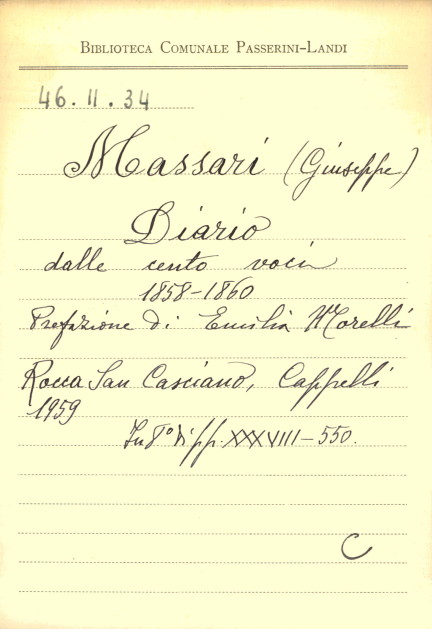 BIBLIOTECA COMUNALE PASSERINI-LANDI
46.II.34
Massari (Giuseppe)
Diario
dalle cento voci
1858-1860
Prefazione di Emilia Morelli
Rocca San Casciano, Cappelli
1959
In 8° di pp. XXXVIII-550.
C